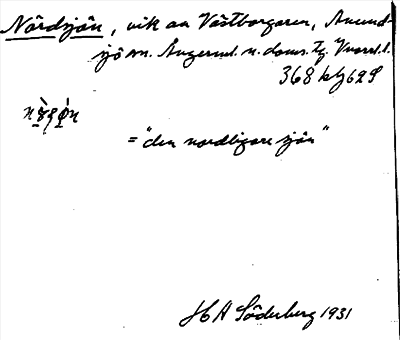 Nördsjön, vik av Västborgaren, Anund-
sjö sn. Ångerml. n. doms. tg. Vnorrl. l.
368 kbg 29
= "den nordligare sjön"
H A Söderberg 1931